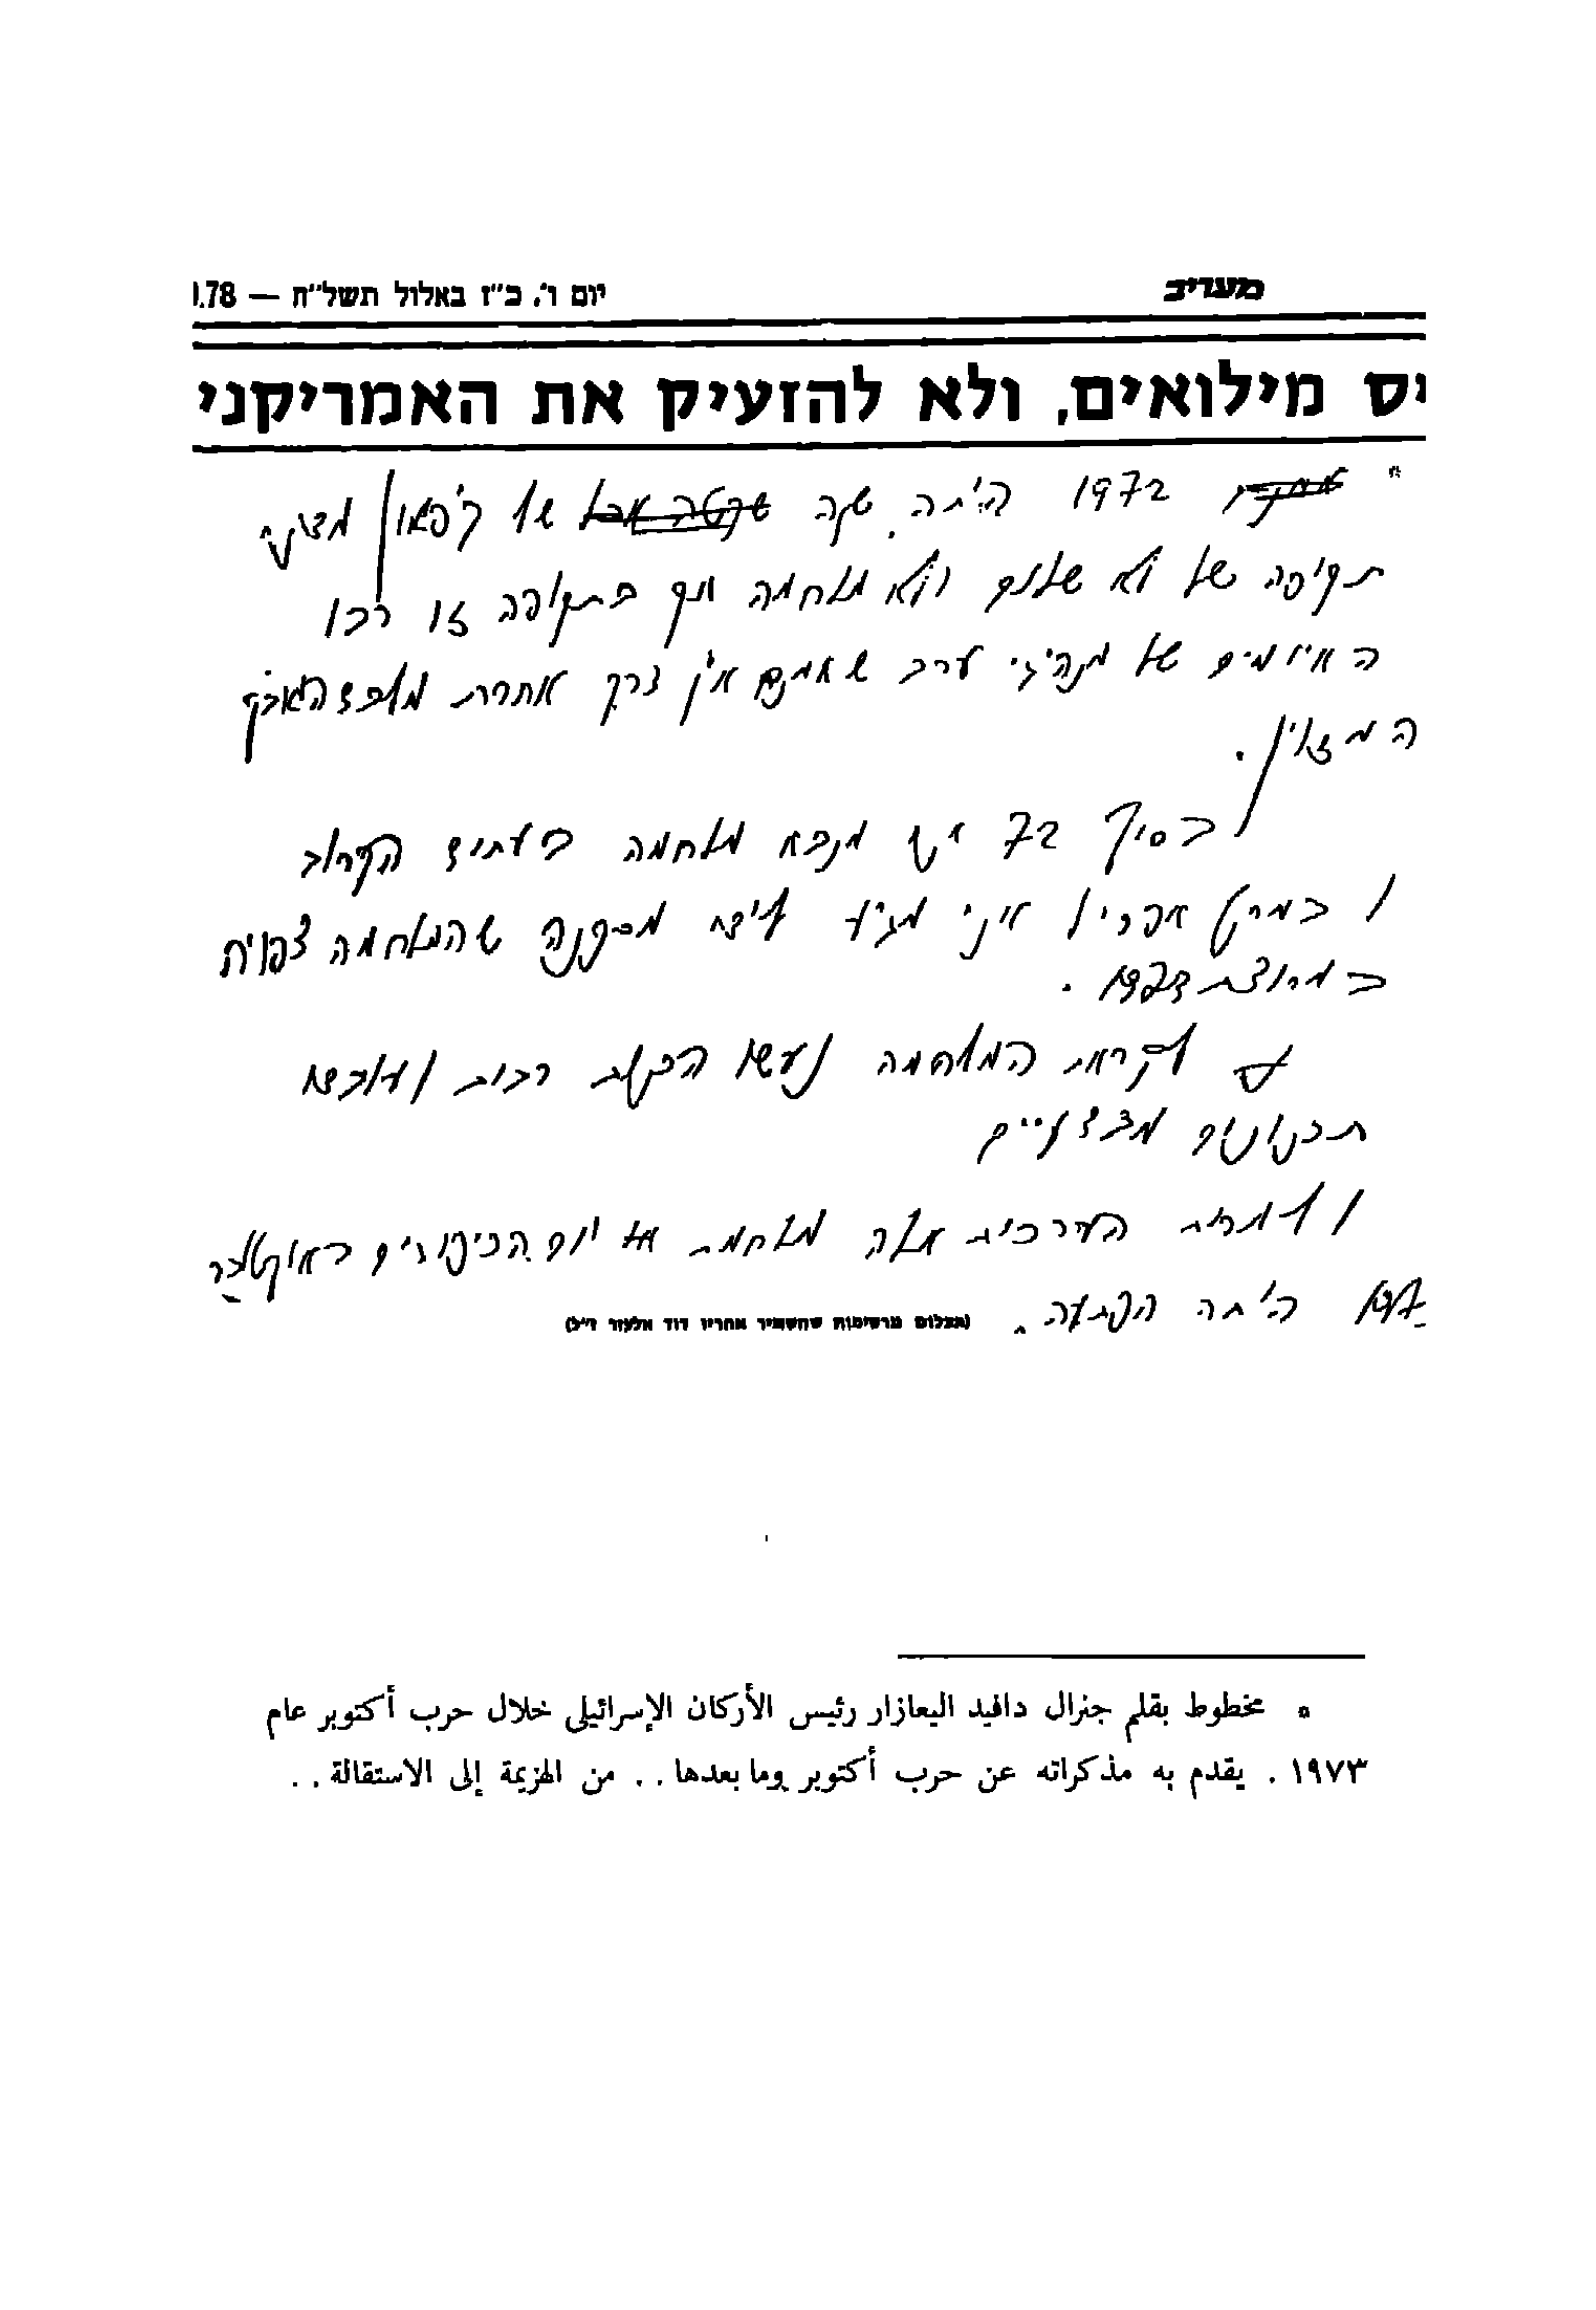 מעריב יום ו'. כ"ז באלול תשל"ח — 1.78
יס מילואים, ולא להזעיק את האמריקני
1972 היתה שנה של קפאון מדיני
תקופה של לא שלום ולא מלחמה וגם בתקופה זו רבו
האיומים של מנהיגי ערב שאמנם אין דרך אחרת מלבד המאבק
המזוין.
בסוף 72 יש מלחמה בעתיד הקרוב
ובמרץ אפריל אני מגיע לידי מסקנה שהמלחמה צפויה
במרוצת 1973.
לקראת המלחמה נעשו הכנות רבות ועובדו
תכנונים מבצעיים
ולמרות הערכות אלה מלחמת יום הכיפורים באוקטובר
היתה הפתעה.
(תצלום מרשימות שהשאיר אחריו דוד אלעזר ז"ל)
* مخطوط بقلم جنرال دافيد اليعازار رئيس الأركان الإسرائيلى خلال حرب أكتوبر عام
١٩٧٣ . يقدم به مذكراته عن حرب أكتوبر وما بعدها . . من الهزيمة إلى الاستقالة . .